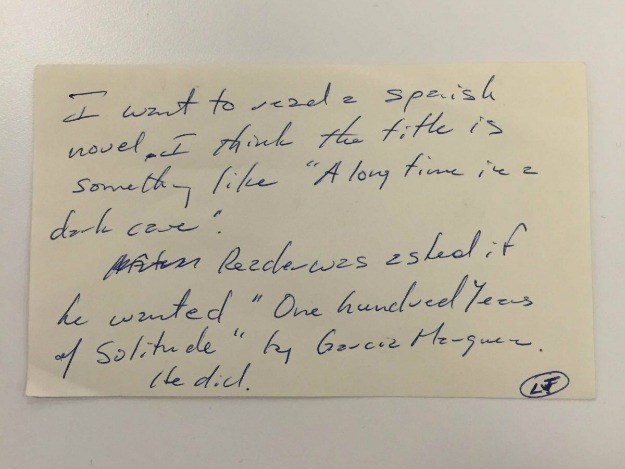 I want to read a spanish
novel. I think the title is
something like "A long time in a
dark cave".
Reader was asked if
he wanted "One hundred Years
of Solitude" by Garcia Marquez.
He did.
LJ